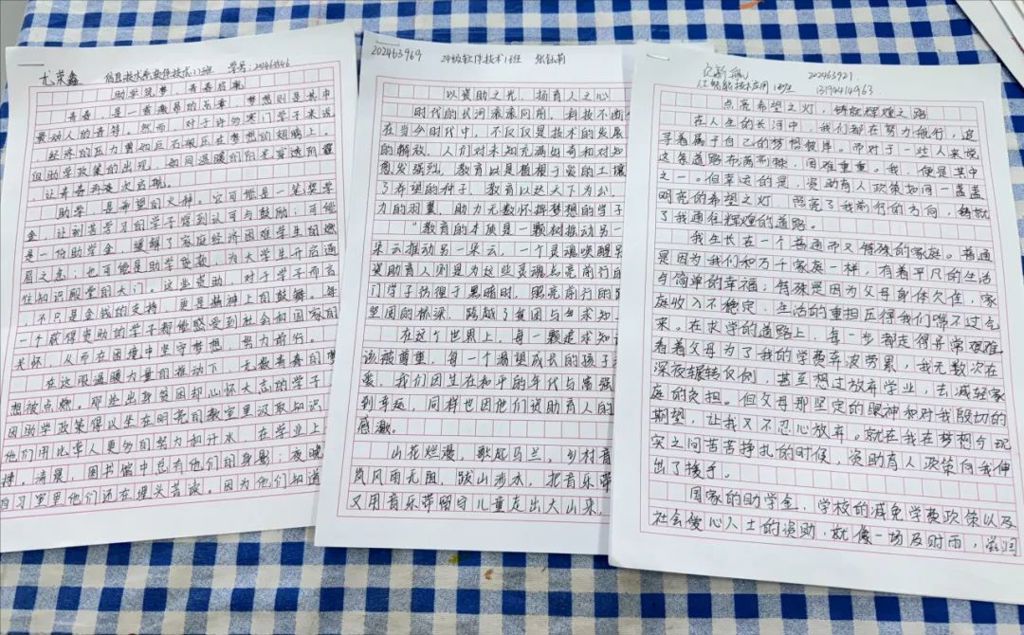 尤荣鑫 信息技术系软件技术1班 学号:20246
助学筑梦,青春启航
青春,是一首激昂的乐章,梦想则是其中
最动人的音符。然而,对于许多寒门学子来说,
经济的压力曾如巨石般压在梦想的翅膀上,
但助学政策的出现,如同温暖的阳光穿透阴霾
让青春再次启航。
助学,是希望的火种。它可能是一笔奖学
金,让刻苦学习的学子得到认可与鼓励;可能
是一份助学金,缓解了家庭经济困难学生的燃
眉之急;也可能是助学贷款,为大学生开启通
往知识殿堂的大门。这些资助,对于学子而言
不只是金钱的支持,更是精神上的鼓舞。每
一个获得资助的学子都能感受到社会和国家的
关怀,从而在困境中坚守梦想,努力前行。
在这股温暖力量的推动下,无数青春的梦
想被点燃。那些出身贫困却心怀大志的学子
因助学政策得以坐在明亮的教室里汲取知识
他们用比常人更多的努力和汗水,在学业上
拼。清晨,图书馆中总有他们的身影;夜晚
自习室里他们还在埋头苦读。因为他们知道
202463969 24级软件技术1班 张钰莉
以资助之光,扬育人之心
时代的长河滚滚向前,科技不断
在当今时代中,不仅仅是技术的发展
的解放,人们对未知充满好奇和对知
愈发强烈。教育以是植根于爱的土壤
了希望的种子,教育以达天下为公,
力的羽翼,助力无数怀揣梦想的学子
“教育的本质是一颗树推动另一
朵云推动另一朵云,一个灵魂唤醒另
资助育人则是为这些灵魂点亮前行的
门学子彷徨于黑暗时,照亮前行的路
坚固的桥梁,跨越了贫困与求知
在这个世界上,每一颗追求知识
该被尊重,每一个渴望成长的孩子
爱,我们因生在和平的年代与富强
到幸运,同样也因他们资助育人的
感激。
山花烂漫,歌起马兰,乡村音
岚风雨无阻,跋山涉水,把音乐带
又用音乐带留守儿童走出大山来,
202463921
应用1班 13194414963
点亮希望之灯,铸就辉煌之路
在人生的长河中,我们都在努力航行,追
寻着属于自己的梦想彼岸。而对于一些人来说
这条道路布满荆棘,困难重重。我,便是其中
之一。但幸运的是,资助育人政策如同一盏盏
明亮的希望之灯,照亮了我前行的方向,铸就
了我通往辉煌的道路。
我生长在一个普通而又特殊的家庭。普通
是因为我们和万千家庭一样,有着平凡的生活
与简单的幸福;特殊是因为父母身体欠佳,家
庭收入不稳定,生活的重担压得我们喘不过气
来。在求学的道路上,每一步都走得异常艰难
看着父母为了我的学费奔波劳累,我无数次在
深夜辗转反侧,甚至想过放弃学业,去减轻家
庭的负担。但父母那坚定的眼神和对我殷切的
期望,让我又不忍心放弃。就在我在梦想与现
实之间苦苦挣扎的时候,资助育人政策向我伸
出了援手。
国家的助学金,学校的减免学费政策以及
社会爱心人士的资助,就像一场及时雨,滋润